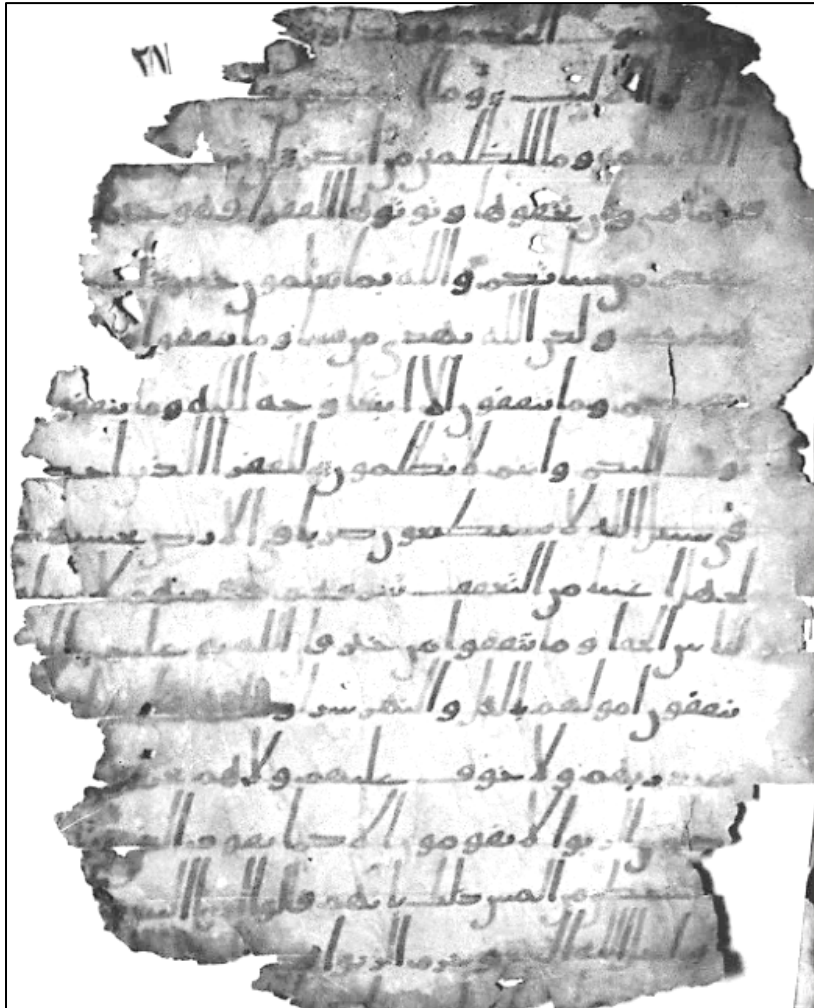 الحكمة فقد او
الالبب وما انفقتم من
الله يعلمه وما للظلمين من انصر ان تبد
فنعما هي وان تخفوها وتوتوها الفقرا فهو خير
عنكم من سياتكم والله بما تعملون خبير ليس
هديهم ولكن الله يهدي من يشا وما تنفقوا
فلانفسكم وما تنفقون الا ابتغا وجه الله وما تنفقو
يوف اليكم وانتم لا تظلمون للفقرا الذين احصر
في سبيل الله لا يستطيعون ضربا في الارض يحسبهم
الجهل اغنيا من التعفف تعرفهم بسيمهم لا
الناس الحافا وما تنفقوا من خير فان الله به عليم الذ
ينفقون امولهم باليل والنهر سرا و
عند ربهم ولا خوف عليهم ولا هم يحز
ياكلون الربوا لا يقومون الا كما يقوم الذي
الشيطن من المس ذلك بانهم قلوا انما البيع
واحل الله البيع وحرم الربوا